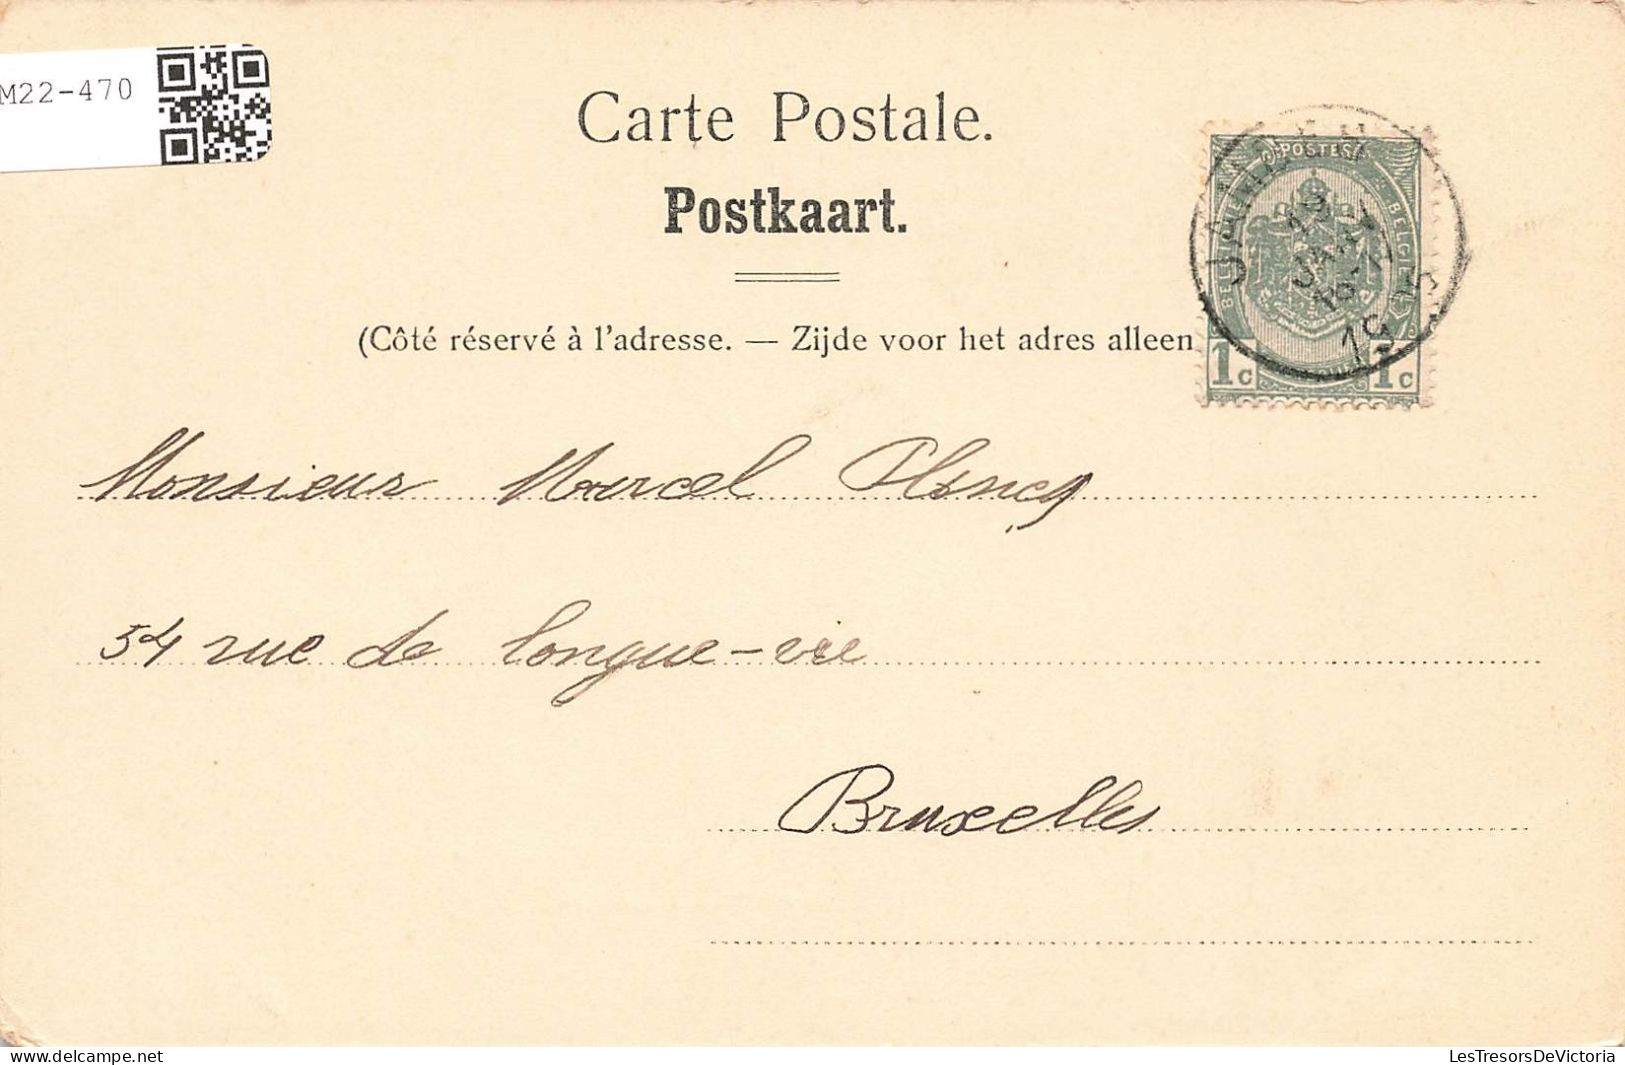 M22-470
Carte Postale.
Postkaart.
(Côté réservé à l'adresse. — Zijde voor het adres alleen
POSTES
BELGI
1c 1c
Monsieur Marcel
54 rue de longue-vie
Bruxelles
delcampe.net
LesTresorsDeVictoria